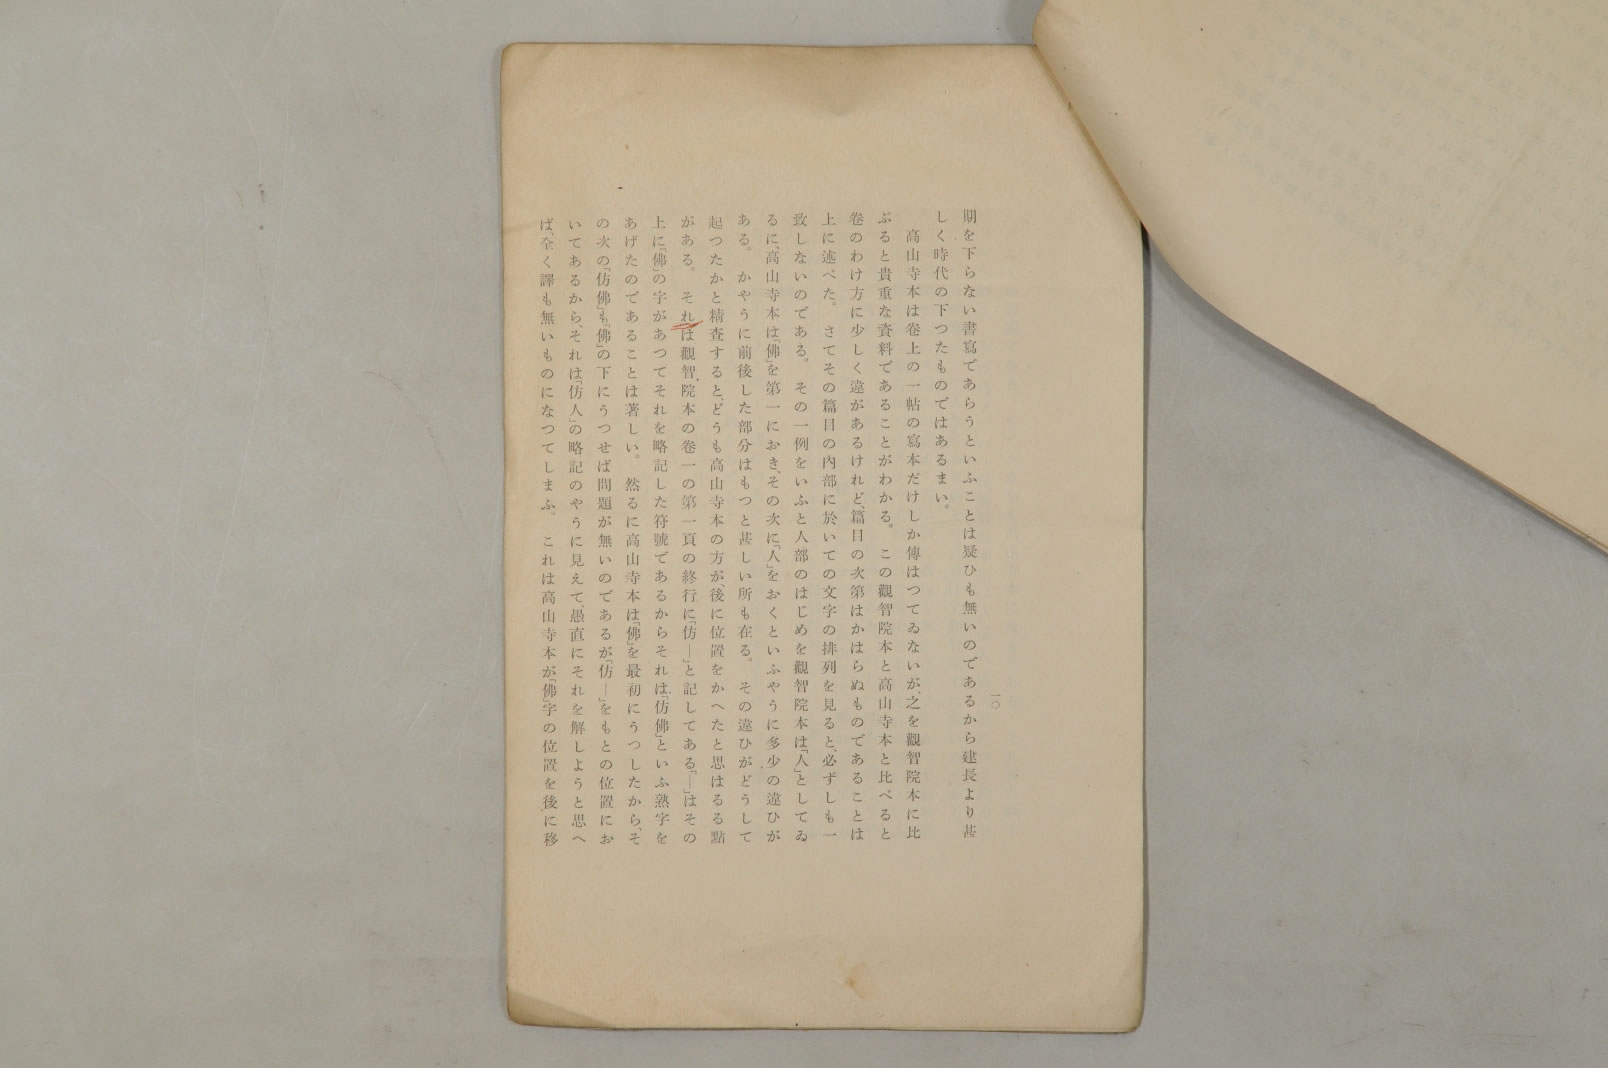 期を下らない書寫であらうといふことは疑ひも無いのであるから建長より甚
しく時代の下つたものではあるまい。
高山寺本は卷上の一帖の寫本だけしか傳はつてゐないが、之を觀智院本に比
ぶると貴重な資料であることがわかる。この觀智院本と高山寺本と比べると
卷のわけ方に少しく違があるけれど、篇目の次第はかはらぬものであることは
上に述べた。さてその篇目の內部に於いての文字の排列を見ると、必ずしも一
致しないのである。その一例をいふと人部のはじめを觀智院本は「人」としてゐ
るに、高山寺本は「佛」を第一におき、その次に「人」をおくといふやうに多少の違ひが
ある。かやうに前後した部分はもつと甚しい所も在る。その違ひがどうして
起つたかと精査すると、どうも高山寺本の方が、後に位置をかへたと思はるる點
がある。それは觀智院本の卷一の第一頁の終行に「仿—」と記してある「—」はその
上に「佛」の字があつてそれを略記した符號であるからそれは「仿佛」といふ熟字を
あげたのであることは著しい。然るに高山寺本は「佛」を最初にうつしたから、そ
の次の「仿佛」も「佛」の下にうつせば問題が無いのであるが「仿—」をもとの位置にお
いてあるから、それは「仿人」の略記のやうに見えて、愚直にそれを解しようと思へ
ば、全く譯も無いものになつてしまふ。これは高山寺本が「佛」字の位置を後に移
一〇